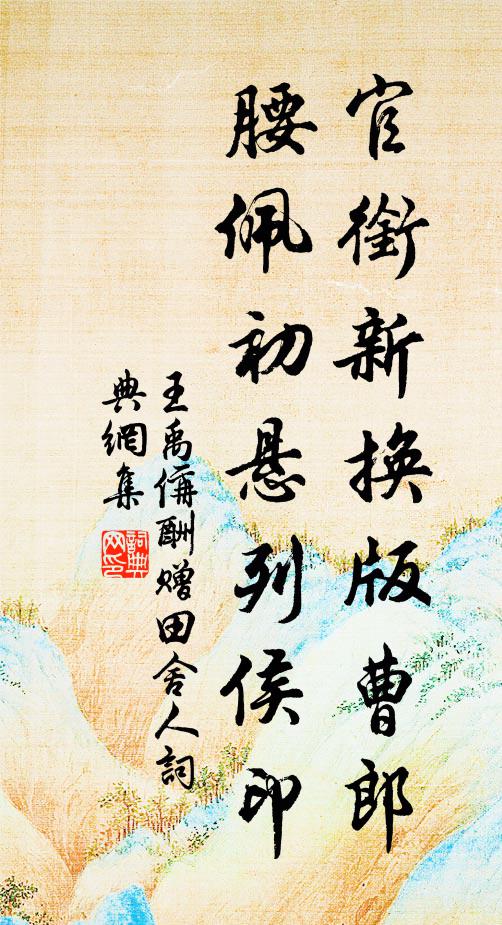 官銜新換版曹郎
腰佩初悬列侯印
王禹偁酬赠田舍人詞
典網集
詞典
网印